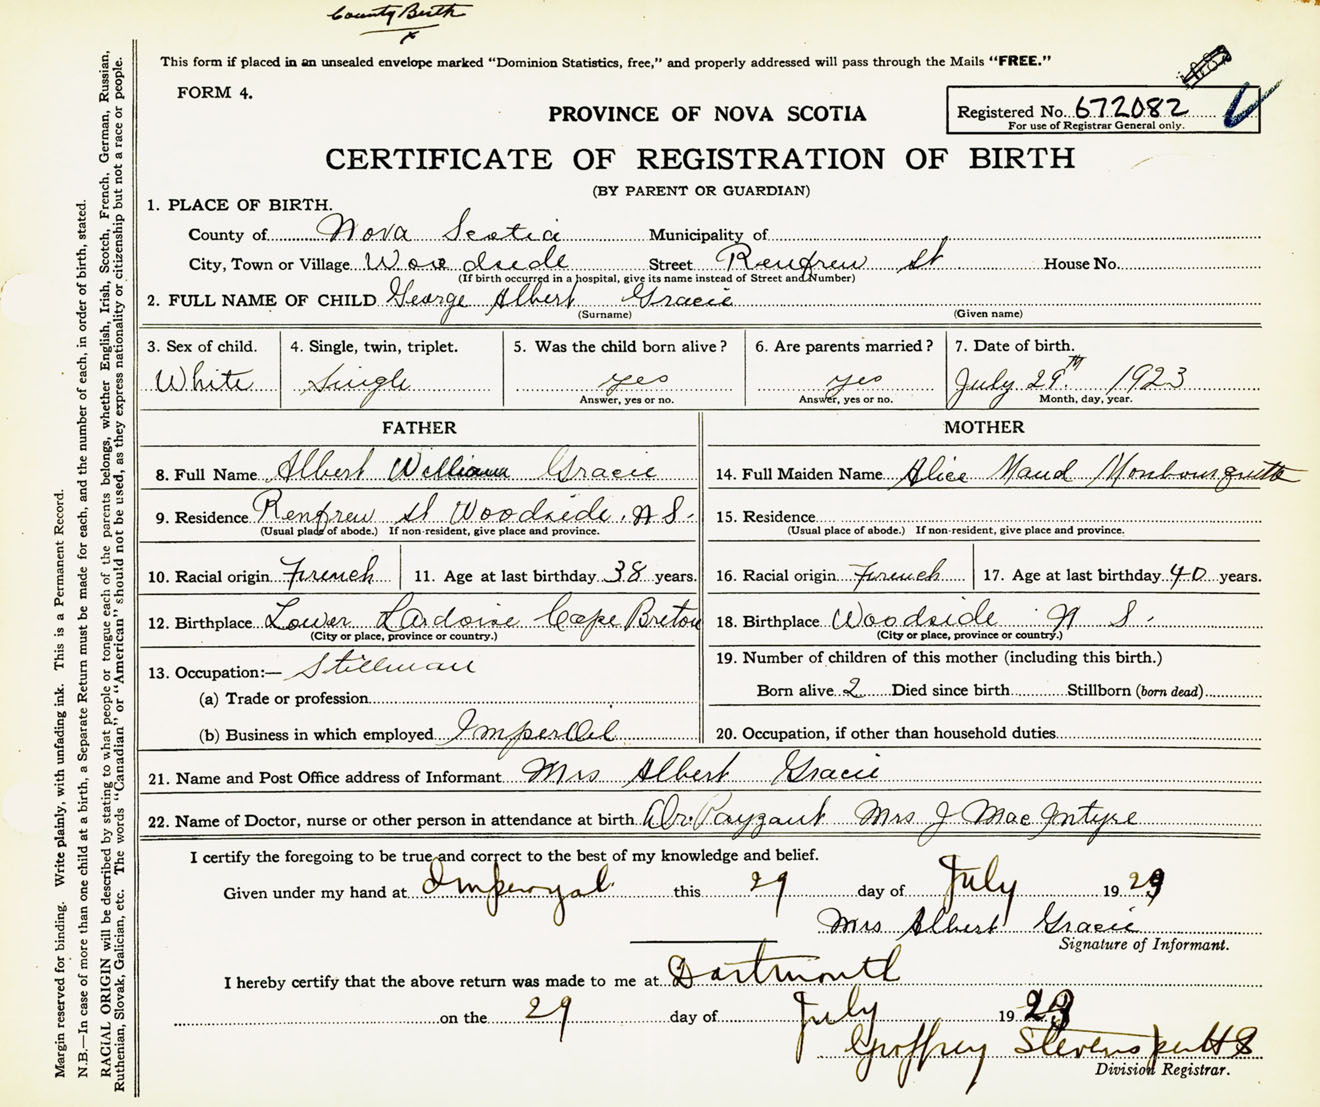 County Birth
x
This form if placed in an unsealed envelope marked "Dominion Statistics, free," and properly addressed will pass through the Mails "FREE."
FORM 4.
PROVINCE OF NOVA SCOTIA
Registered No. 672082
For use of Registrar General only.
CERTIFICATE OF REGISTRATION OF BIRTH
(BY PARENT OR GUARDIAN)
1. PLACE OF BIRTH.
County of Nova Scotia Municipality of
City, Town or Village Woodside Street Renfrew St House No.
(If birth occurred in a hospital, give its name instead of Street and Number)
2. FULL NAME OF CHILD George Albert Gracie
(Surname) (Given name)
3. Sex of child. 4. Single, twin, triplet. 5. Was the child born alive? 6. Are parents married? 7. Date of birth.
White Single yes yes July 29th 1923
Answer, yes or no. Answer, yes or no. Month, day, year.
FATHER MOTHER
8. Full Name Albert William Gracie 14. Full Maiden Name Alice Maud Monbourquette
9. Residence Renfrew St Woodside. N S. 15. Residence
(Usual place of abode.) If non-resident, give place and province. (Usual place of abode.) If non-resident, give place and province.
10. Racial origin French 11. Age at last birthday 38 years. 16. Racial origin French 17. Age at last birthday 40 years.
12. Birthplace Lower Lardoise Cape Breton 18. Birthplace Woodside N S.
(City or place, province or country.) (City or place, province or country.)
13. Occupation:— Stillman 19. Number of children of this mother (including this birth.)
(a) Trade or profession Born alive 2 Died since birth Stillborn (born dead)
(b) Business in which employed ImperOil 20. Occupation, if other than household duties
21. Name and Post Office address of Informant Mrs Albert Gracie
22. Name of Doctor, nurse or other person in attendance at birth Dr. Payzant Mrs J MacIntyre
I certify the foregoing to be true and correct to the best of my knowledge and belief.
Given under my hand at Imperoyal this 29 day of July 1923
Mrs Albert Gracie
Signature of Informant.
I hereby certify that the above return was made to me at Dartmouth
on the 29 day of July 1923
Geoffrey Stevens per H S
Division Registrar.
Margin reserved for binding. Write plainly, with unfading ink. This is a Permanent Record.
N.B.—In case of more than one child at a birth, a Separate Return must be made for each, and the number of each, in order of birth, stated.
RACIAL ORIGIN will be described by stating to what people or tongue each of the parents belongs, whether English, Irish, Scotch, French, German, Russian,
Ruthenian, Slovak, Galician, etc. The words "Canadian" or "American" should not be used, as they express nationality or citizenship but not a race or people.